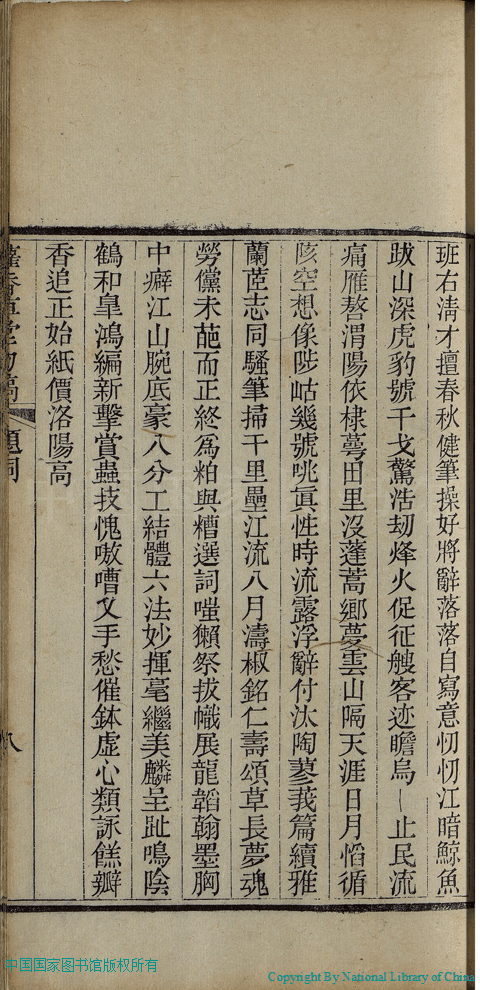 班右清才擅春秋健筆操好將辭落落自寫意忉忉江暗鯨魚
跋山深虎豹號干戈驚浩刼烽火促征艘客迹瞻烏止民流
痛雁嗸渭陽依棣萼田里沒蓬蒿鄉夢雲山隔天涯日月慆循
陔空想像陟岵幾號咷眞性時流露浮辭付汰陶蓼莪篇續雅
蘭茝志同騷筆掃千里壘江流八月濤椒銘仁壽頌草長夢魂
勞儻未葩而正終爲粕與糟選詞嗤獺祭拔幟展龍韜翰墨胸
中癖江山腕底豪八分工結體六法妙揮毫繼美麟呈趾鳴陰
鶴和臯鴻編新擊賞蟲技愧嗷嘈又手愁催鉢虛心類詠餻瓣
香追正始紙價洛陽高
題詞
八
中国国家图书馆版权所有
Copyright By National Library of China